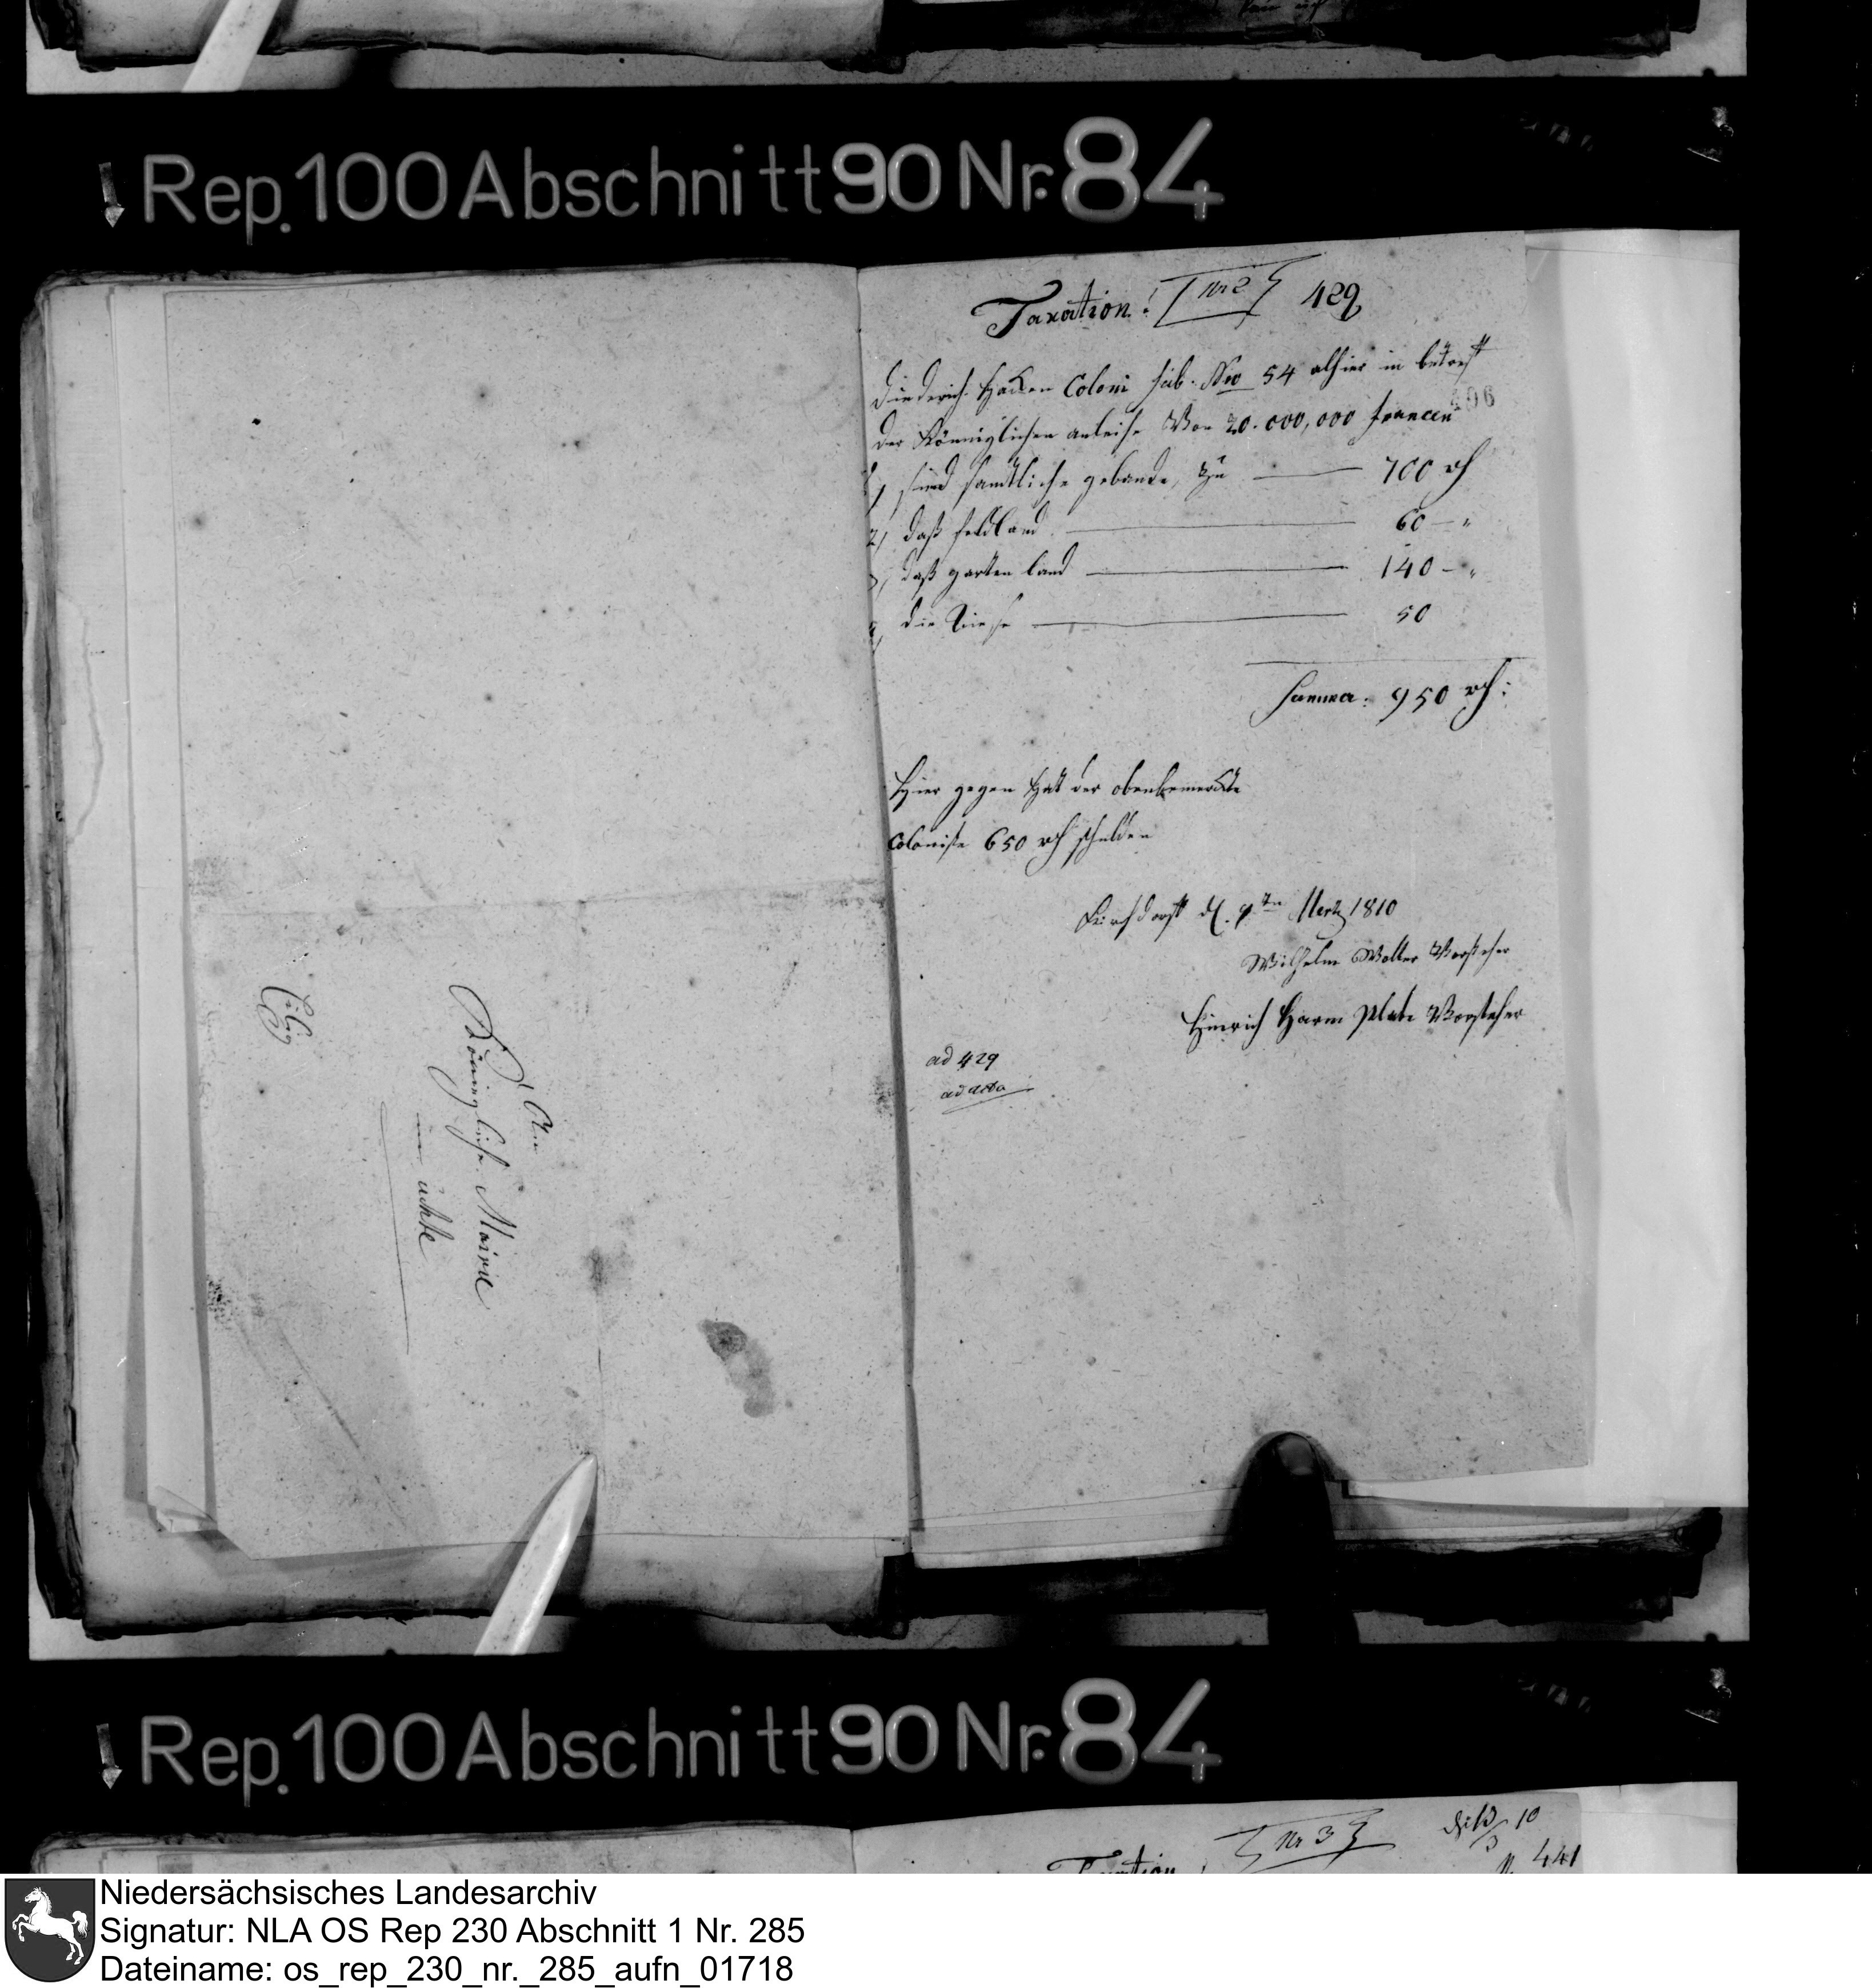 Rep. 100 Abschnitt 90 Nr. 84
Taxation! Nr 2 429
Diederich Hacken Coloni sub. Nro 54 alhier in betreff
406
der Könniglichen anleihe Von 20.000,000 francen
1) sind samtliche gebaude, zu 700 rh
2) daß feldland 60 — "
3) daß garten land 140 — "
4) die Wiese 50
Summa: 950 rh:
Hier gegen hat der obenbemerckte
Coloniste 650 rh schulden
Kirchdorff d. ten Mertz 1810
Wilhelm Wolter Vorsteher
Hinrich Harm Plate Vorsteher
ad 429
ad acta
An
Königliche Mairie
in uchte
Cito
Rep. 100 Abschnitt 90 Nr. 84
Nr 3
10
Taxation
441
Niedersächsisches Landesarchiv
Signatur: NLA OS Rep 230 Abschnitt 1 Nr. 285
Dateiname: os_rep_230_nr._285_aufn_01718